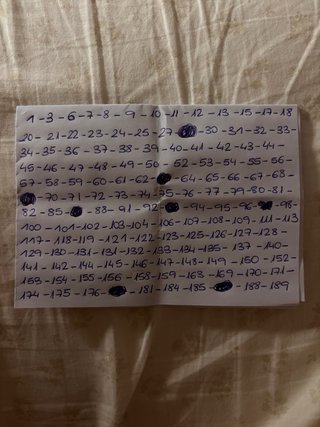 1 - 3 - 6 - 7 - 8 - 9 - 10 - 11 - 12 - 13 - 15 - 17 - 18
20 - 21 - 22 - 23 - 24 - 25 - 27 - - 30 - 31 - 32 - 33 -
34 - 35 - 36 - 37 - 38 - 39 - 40 - 41 - 42 - 43 - 44 -
45 - 46 - 47 - 48 - 49 - 50 - 52 - 53 - 54 - 55 - 56 -
57 - 58 - 59 - 60 - 61 - 62 - 64 - 65 - 66 - 67 - 68 -
- 70 - 71 - 72 - 73 - 74 - 75 - 76 - 77 - 79 - 80 - 81 -
82 - 85 - - 88 - 91 - 92 - - 94 - 95 - 96 - - 98 -
100 - 101 - 102 - 103 - 104 - 106 - 107 - 108 - 109 - 111 - 113
117 - 118 - 119 - 121 - 122 - 123 - 125 - 126 - 127 - 128 -
129 - 130 - 131 - 131 - 132 - 133 - 134 - 135 - 137 - 140 -
141 - 142 - 144 - 145 - 146 - 147 - 148 - 149 - 150 - 152 -
153 - 154 - 155 - 156 - 158 - 159 - 163 - 169 - 170 - 171 -
174 - 175 - 176 - - 181 - 184 - 185 - - 188 - 189